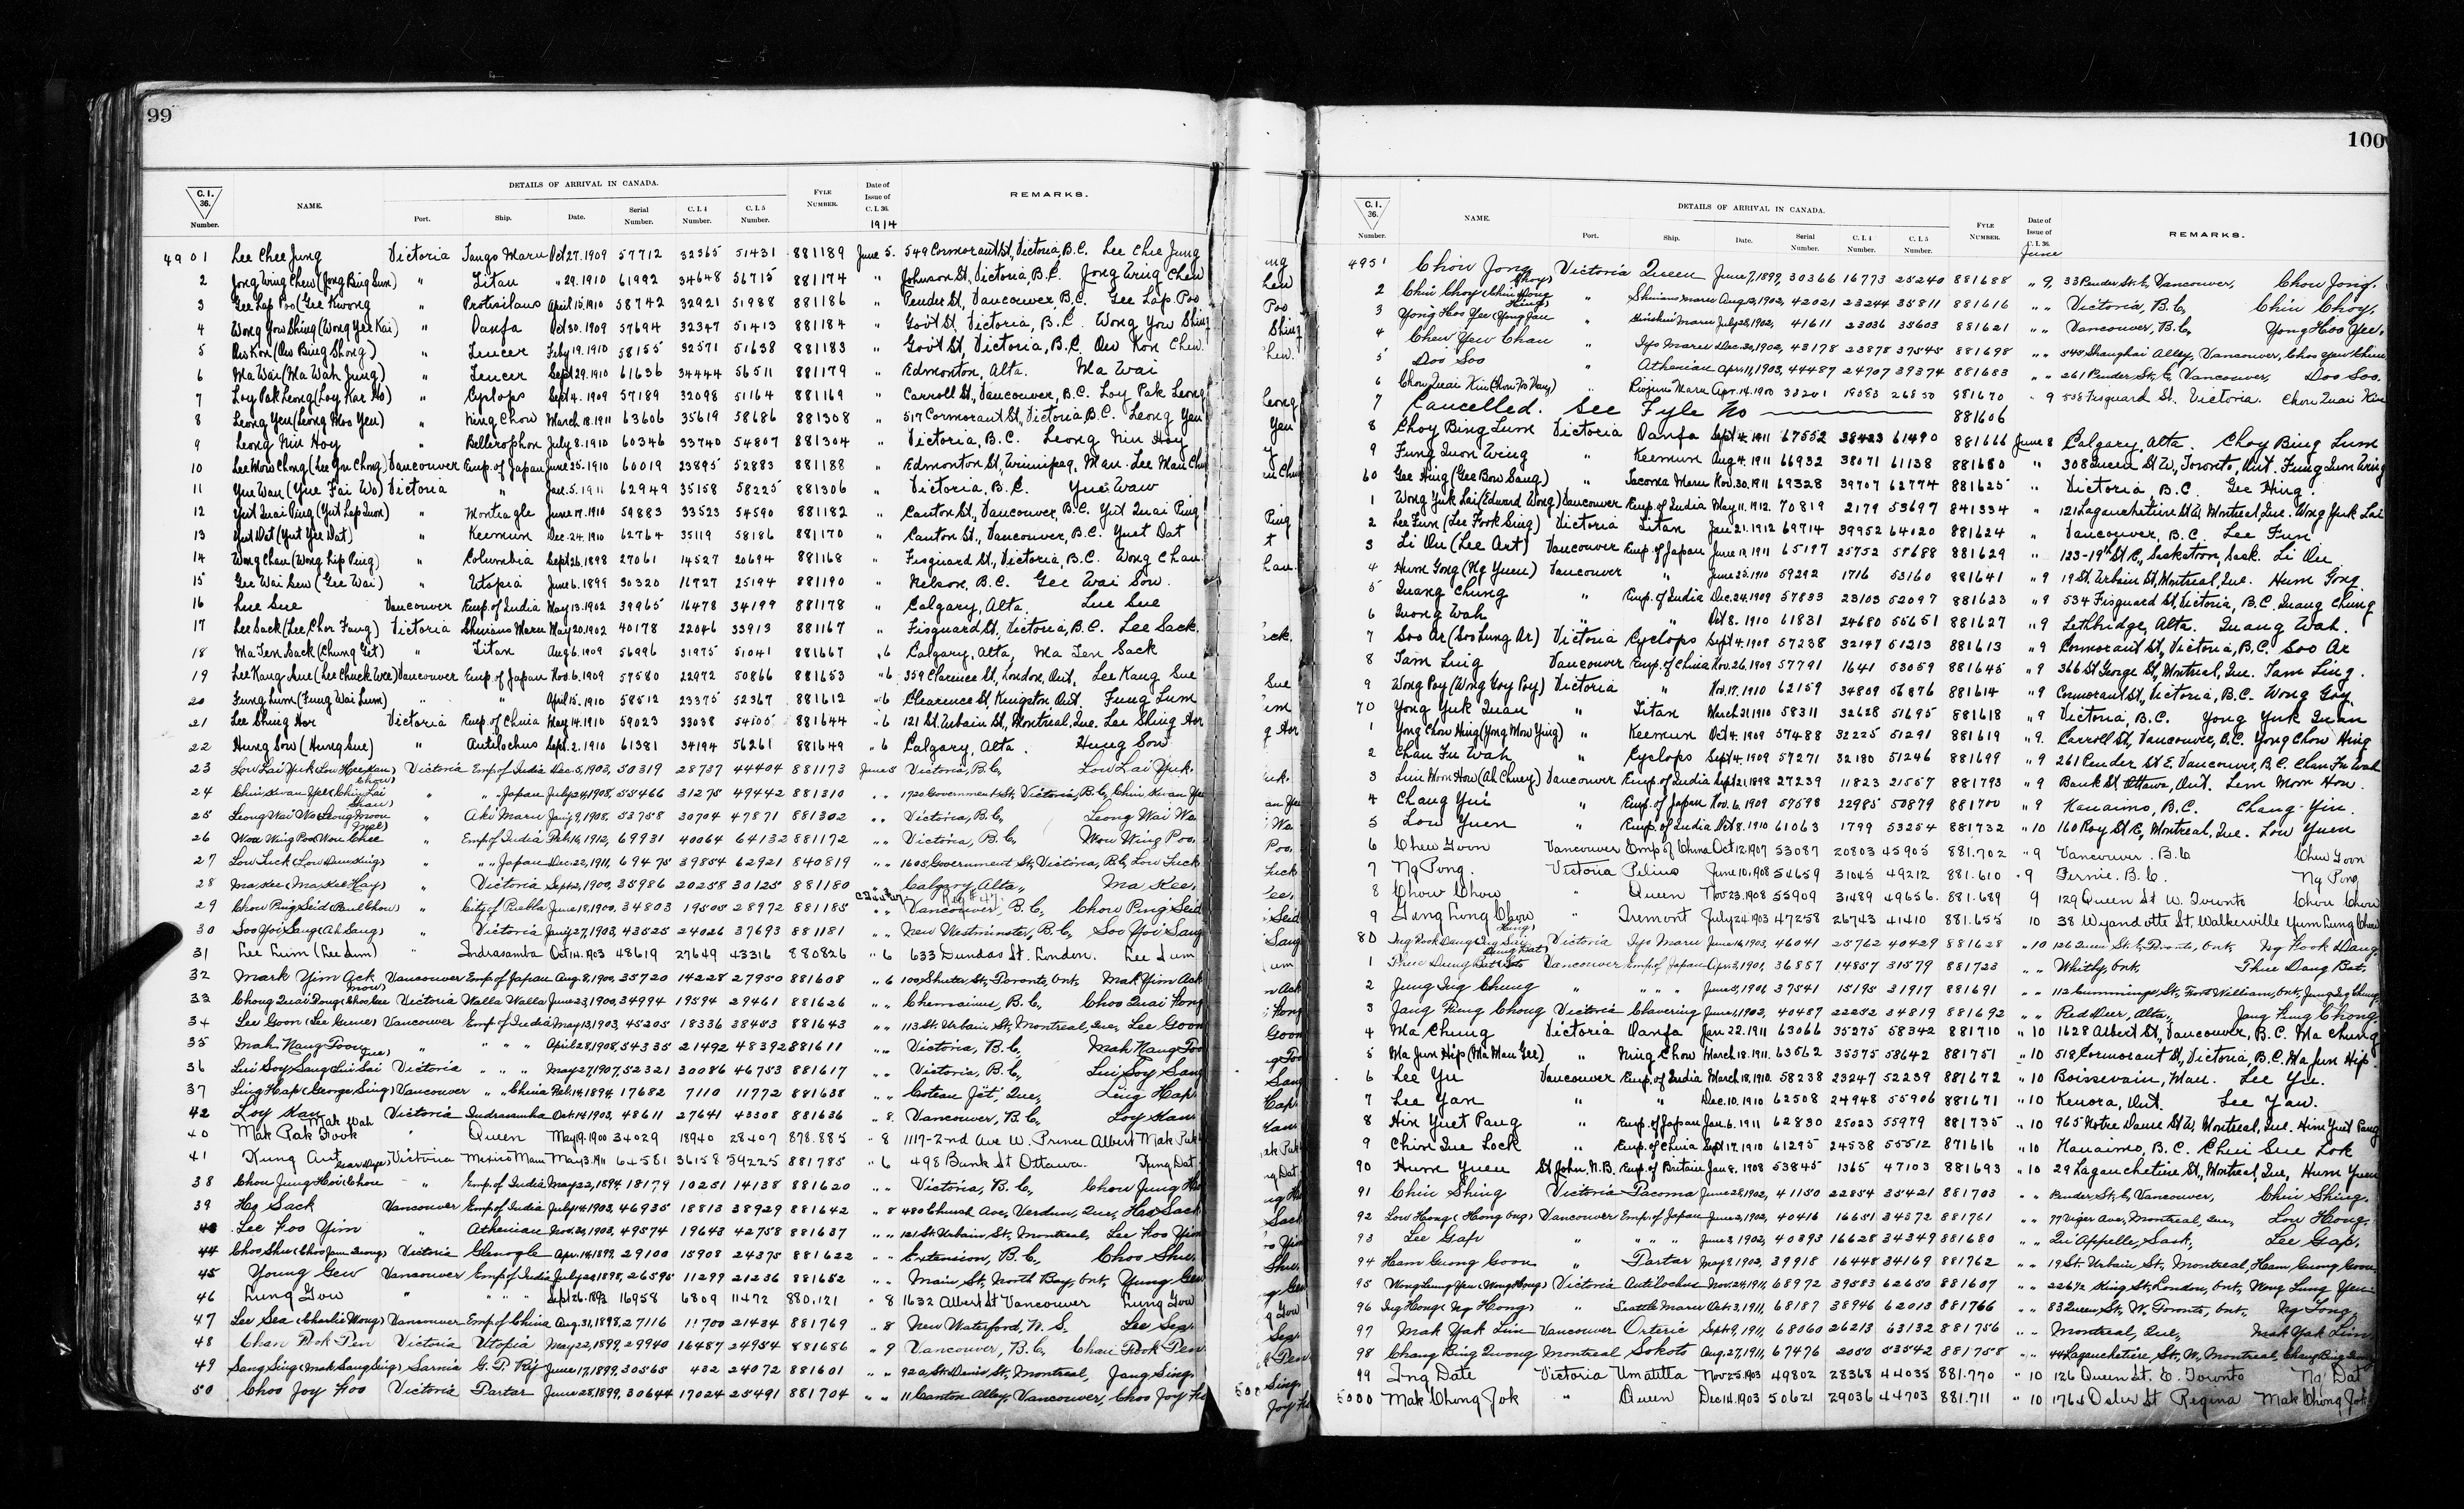 99
C. I. 36. Number. NAME. DETAILS OF ARRIVAL IN CANADA. Port. Ship. Date. Serial Number. C. I. 4 Number. C. I. 5 Number. FYLE NUMBER. Date of Issue of C. I. 36. 1914 REMARKS.
4901 Lee Chee Jung Victoria Tango Maru Oct 27. 1909 57712 32365 51431 881189 June 5. 549 Cormorant St, Victoria, B.C. Lee Chee Jung
2 Jong Wing Chew (Jong Bing Sun) " Titan " 29. 1910 61992 34648 56715 881174 " Johnson St, Victoria, B.C. Jong Wing Chew
3 Gee Lap Poo (Gee Kwong " Protesilaus April 15. 1910 58742 32921 51988 881186 " Pender St, Vancouver, B.C. Gee Lap Poo
4 Wong Yow Shing (Wong Yee Kai) " Oanfa Oct 30. 1909 57694 32347 51413 881184 " Gov't St, Victoria, B.C. Wong Yow Shing
5 Ow Kon (Ow Bing Shong) " Teucer Feby 19. 1910 58155 32571 51638 881183 " Gov't St, Victoria, B.C. Ow Kon Chew.
6 Ma Wai (Ma Wah Jung) " Teucer Sept 29. 1910 61636 34444 56511 881179 " Edmonton, Alta. Ma Wai
7 Loy Pak Leong (Loy Kar Ho) " Cyclops Sept 4. 1909 57189 32098 51164 881169 " Carroll St, Vancouver, B.C. Loy Pak Leong
8 Leong Yen (Leong Moo Yen) " Ning Chow March 18. 1911 63606 35619 58686 881308 " 517 Cormorant St, Victoria B.C. Leong Yen
9 Leong Niu Hoy " Bellerophon July 8. 1910 60346 33740 54807 881304 " Victoria, B.C. Leong Niu Hoy
10 Lee Mow Chong (Lee Gn Chong) Vancouver Emp. of Japan June 25. 1910 60019 23895 52883 881188 " Edmonton St, Winnipeg, Man. Lee Man Chu
11 Yue Wau (Yue Fai Wo) Victoria " Jan. 5. 1911 62949 35158 58225 881306 " Victoria, B.C. Yue Waw
12 Yut Quai Ping (Yut Lap Quon) " Monteagle June 17. 1910 59883 33523 54590 881182 " Canton St, Vancouver, B.C. Yut Quai Ping
13 Yut Dat (Yut Yee Dat) " Keemun Dec. 24. 1910 62764 35119 58186 881170 " Canton St, Vancouver, B.C. Yuet Dat
14 Wong Chau (Wong Lip Ping) " Columbia Sept 26. 1898 27061 14527 20694 881168 " Fisguard St, Victoria, B.C. Wong Chau.
15 Gee Wai Sew (Gee Wai) " Utopia June 6. 1899 30320 16727 25194 881190 " Nelson, B.C. Gee Wai Sow.
16 Lue Sue Vancouver Emp. of India May 13. 1902 39965 16478 34199 881178 " Calgary, Alta. Lue Sue
17 Lee Sack (Lee Chor Fang) Victoria Shinano Maru May 20. 1902 40178 22046 33913 881167 " Fisguard St, Victoria, B.C. Lee Sack.
18 Ma Ten Sack (Chung Git) " Titan Aug 6. 1909 56996 31975 51041 881667 " 6 Calgary, Alta, Ma Ten Sack
19 Lee Kang Sue (Lee Chuck Wee) Vancouver Emp. of Japan Nov. 6. 1909 57580 22972 50866 881653 " 6 359 Clarence St, London, Ont. Lee Kang Sue
20 Fung Lum (Fung Wai Lum) " " April 15. 1910 58512 23375 52367 881612 " 6 Clarence St, Kingston Ont. Fung Lum
21 Lee Shing Hor Victoria Emp. of China May 14. 1910 59023 33038 54105 881644 " 6 121 St. Urbain St, Montreal, Que. Lee Shing Hor
22 Hung Sow (Hung Sue) " Antilochus Sept. 2. 1910 61381 34194 56261 881649 " 6 Calgary, Alta. Hung Sow
23 Low Lai Yuk (Low Hee Kan) Victoria Emp of India Dec. 5, 1903, 50319 28737 44404 881173 June 5 Victoria, B.C. Low Lai Yuk.
24 Chin Kwan Yee (Chin Lai Chow) " " Japan July 24, 1908, 55466 31275 49442 881310 " " 1720 Government St, Victoria, B.C, Chin Kwan Yee
25 Leong Wai Wa (Leong Moon " Aki Maru Jan'y 9, 1908, 53758 30704 47871 881302 " Victoria, B.C, Leong Wai Wa
26 Wou Wing Poo (Wou Chee " Emp of India Feb. 16, 1912, 69931 40064 64132 881172 " " Victoria, B.C. Wou Wing Poo.
27 Low Luck (Low Dun King) " " Japan Dec. 22, 1911, 69475 39854 62921 840819 " " 1605 Government St, Victoria, B.C, Low Luck
28 Ma Kee (Ma Kee Hay) " Victoria Sept 2, 1900, 35986 20258 30125 881180 " Calgary, Alta, Ma Kee.
29 Chou Ping Seid (Paul Chou) " City of Puebla June 18, 1900, 34803 19505 28972 881185 " " Vancouver, B.C, Chou Ping Seid
30 Soo Yoi Sang (Ah Sang) " Victoria Jan'y 27, 1903, 43525 24026 37693 881181 " " New Westminster, B.C, Soo Yoi Sang
31 Lee Lum (Lee Sum) " Indrasamha Oct 14. 1903 48619 27649 43316 880826 " 6 633 Dundas St. London. Lee Lum
32 Mark Yim Ack Vancouver Emp of Japan Aug. 8, 1900, 35720 14228 27950 881608 " 6 100 Shuter St, Toronto, Ont. Mak Yim Ack
33 Chong Quai Dong (Choo Lue Victoria Walla Walla June 23, 1900, 34994 19594 29461 881626 " " Chemainus, B.C, Choo Quai Hong
34 Lee Goon (Lee Gueue) Vancouver Emp of India May 13, 1903, 45205 18336 38453 881643 " " 113 St. Urbain St, Montreal, Que, Lee Goon
35 Mah Nang Toong " " " " April 28, 1908, 54335 21492 48392 881611 " " Victoria, B.C, Mah Nang Too
36 Lui Soy Sang (Lui Sai Victoria " " " May 27, 1907, 52321 30086 46753 881617 " " Victoria, B.C, Lui Soy Sang
37 Ling Hap (George Sing) Vancouver " " China Feb. 14, 1894, 17682 7110 11772 881638 " " Coteau Jct, Que, Ling Hap
42 Loy Kau Victoria Indrasamha Oct. 14, 1903, 48611 27641 43308 881636 " 8. Vancouver, B.C, Loy Kau
40 Mak Pak Fook Mak Wah " Queen May 19. 1900 34029 18940 28407 878.885 " 8 1117-2nd Ave W. Prince Albert Mak Pak
41 Kung Aut Victoria Mexico Maru May 3. 11 64581 36158 59225 881785 " 6 498 Bank St Ottawa. Fung Dat
38 Chou Jung Hoi (Chou " Emp. of India May 22, 1894 18179 10251 14138 881620 " " Victoria, B.C, Chou Jung Hoi
39 Ho Sack Vancouver Emp of India July 14, 1903, 46935 18813 38929 881642 " 8 480 Church Ave, Verdun, Que, Hoo Sack
43 Lee Foo Yim " Athenian Nov. 30, 1903, 49574 19643 42758 881637 " " 121 St. Urbain St, Montreal, Lee Foo Yim
44 Choo Shu (Choo Jam Quong) Victoria Glenogle Apr. 14, 1899, 29100 15908 24375 881622 " " Extension, B.C, Choo Shu
45 Young Gew Vancouver Emp of India July 20, 1898, 26595 11299 21236 881652 " " Main St, North Bay, Ont, Yung Gew
46 Lung Gow " " " " Sept 26. 1893 16958 6809 11472 880.121 " 8 1632 Albert St Vancouver Lung Gow
47 Lee Sea (Charlie Wong) Vancouver Emp of China Aug. 31, 1898, 27116 11700 21434 881769 " 8 New Waterford, N.S, Lee Sea
48 Chan Fook Pen Victoria Utopia May 22, 1899, 29940 16487 24954 881686 " 9 Vancouver, B.C, Chan Fook Pen
49 Sang Sing (Mak Sang Sing) Sarnia G.T. R'y June 17, 1899, 30565 432 24072 881601 " " 92a St. Denis St, Montreal, Jang Sing
50 Choo Joy Foo Victoria Tartar June 28, 1899, 30644 17024 25491 881704 " " 11 Canton Alley, Vancouver, Choo Joy Fo
100
C. I. 36. Number. NAME. DETAILS OF ARRIVAL IN CANADA. Port. Ship. Date. Serial Number. C. I. 4 Number. C. I. 5 Number. FYLE NUMBER. Date of Issue of C. I. 36. June REMARKS.
4951 Chou Jong Victoria Queen June 7, 1899, 30366 16773 25240 881688 " 9, 33 Pender St. E, Vancouver, Chou Jong.
2 Chin Choy (Chin Hong Choy) " Shinano Maru Aug. 12, 1902, 42021 23244 35811 881616 " " Victoria, B.C, Chin Choy.
3 Yong Hoo Yee (Yong Jau Hing) " Kinshiu Maru July 28, 1902, 41611 23036 35603 881621 " " Vancouver, B.C, Yong Hoo Yee.
4 Chew Yew Chau " Iyo Maru Dec. 20, 1902, 43178 23878 37545 881698 " " 545 Shanghai Alley, Vancouver, Choo Yew Chine
5 Doo Soo " Athenian Apr. 11, 1903, 44487 24707 39374 881683 " " 261 Pender St, E, Vancouver, Doo Soo.
6 Chou Quai Kin (Chou Fo Hang) " Riojun Maru Apr. 14. 1900 33201 18083 26850 881670 " 9 538 Fisguard St. Victoria. Chou Quai Kin
7 Cancelled. See Fyle No 881606
8 Choy Bing Lum Victoria Oanfa Sept 4. 1911 67552 38423 61490 881666 June 8 Calgary, Alta. Choy Bing Lum
9 Fung Quon Wing " Keemun Aug 4. 1911 66932 38071 61138 881650 " 308 Queen St W, Toronto, Ont. Fung Quon Wing
60 Gee Hing (Gee Bow Sang) " Tacoma Maru Nov. 30. 1911 69328 39707 62774 881625 " Victoria, B.C. Gee Hing.
1 Wong Yuk Lai (Edward Wong) Vancouver Emp. of India May 11. 1912. 70819 2179 53697 841334 " 121 Lagauchetiere St W, Montreal, Que. Wong Yuk Lai
2 Lee Fun (Lee Fook Sing) Victoria Titan Jan 21. 1912 69714 39952 64020 881624 " Vancouver, B.C. Lee Fun
3 Li Ou (Lee Art) Vancouver Emp. of Japan June 13. 1911 65197 25752 57688 881629 " 123-19th St E, Saskatoon, Sask. Li Ou
4 Hum Gong (Ng Yuen) Vancouver " June 25. 1910 59292 1716 53160 881641 " 9 19 St Urbain St, Montreal, Que. Hum Gong
5 Quang Chung " Emp. of India Dec. 24. 1909 57833 23103 52097 881623 " 9 534 Fisguard St, Victoria, B.C. Quang Chung
6 Quong Wah " " Oct 8. 1910 61831 24680 55651 881627 " 9 Lethbridge, Alta. Quang Wah.
7 Soo Ar (Soo Lung Ar) Victoria Cyclops Sept 4. 1909 57238 32147 51213 881613 " 9 Cormorant St, Victoria, B.C. Soo Ar
8 Tam Ling Vancouver Emp. of China Nov. 26. 1909 57791 1641 53059 881645 " 9 366 St George St, Montreal, Que. Tam Ling.
9 Wong Poy (Wong Goy Poy) Victoria " Nov. 17. 1910 62159 34809 56876 881614 " 9 Cormorant St, Victoria, B.C. Wong Goy
70 Yong Yuk Quan " Titan March 21. 1910 58311 32628 51695 881618 " 9 Victoria, B.C. Yong Yuk Quan
1 Yong Chow Hing (Yong Mow Ying) " Keemun Oct 4. 1909 57488 32225 51291 881619 " 9. Carroll St, Vancouver, B.C. Yong Chow Hing
2 Chau Fu Wah " Cyclops Sept 4. 1909 57271 32180 51246 881699 " 9 261 Pender St E. Vancouver, B.C. Chau Fu Wah
3 Lum Mon How (Ah Chuey) Vancouver Emp. of India Sept 21. 1898 27239 11823 21557 881793 " 9 Bank St Ottawa, Ont. Lem Mon How.
4 Chang Yui " Emp. of Japan Nov. 6. 1909 57593 22985 50879 881700 " 9 Nanaimo, B.C. Chang Yin.
5 Low Yuen " Emp. of India Oct 8. 1910 61063 1799 53254 881732 " 10 160 Roy St E, Montreal, Que. Low Yuen
6 Chew Goon Vancouver Emp of China Oct 12. 1907 53087 20803 45905 881.702 " 9 Vancouver. B.C Chew Goon
7 Ng Pong. Victoria Pelius June 10. 1908 54659 31045 49212 881.610 " 9 Fernie. B.C. Ng Pong
8 Chow Chow " Queen Nov 23. 1908 55909 31489 49656. 881.689 9 129 Queen St W. Toronto Chou Chou
9 Gang Lung Chow " Tremont July 24. 1903 47258 26743 41410 881.655 10 38 Wyandotte St. Walkerville Yum Lung Chew
80 Ing Fook Dang (Ing Sai Hung) Victoria Iyo Maru June 16, 1903, 46041 25762 40429 881628 " 10 126 Queen St. E, Toronto, Ont, Ng Fook Dang.
1 Thue Dung Bat Vancouver Emp. of Japan Apr. 3, 1901, 36857 14857 31579 881723 " " Whitby, Ont, Thue Dang Bat.
2 Jung Sig Chung " " " " June 5, 1906 37541 15195 31917 881691 " " 112 Cummings St, Fort William, Ont, Jung Sig Chung
3 Jang Kung Chong Victoria Clavering June 1, 1902, 40487 22252 34819 881692 " " Red Deer, Alta, Jang Kung Chong.
4 Ma Chung Victoria Oanfa Jan 22. 1911 63066 35275 58342 881710 " 10 1628 Albert St, Vancouver, B.C. Ma Chung
5 Ma Jun Hip (Ma Man Gee) " Ning Chow March 18. 1911. 63562 35575 58642 881751 " 10 518 Cormorant St, Victoria, B.C. Ma Jun Hip.
6 Lee Yu Vancouver Emp. of India March 18, 1910. 58238 23247 52239 881672 " 10 Boissevain, Man. Lee Yu.
7 Lee Yan " " Dec. 10. 1910 62508 24948 55906 881671 " 10 Kenora, Ont. Lee Yaw.
8 Hin Yuet Pang " Emp. of Japan Jan 6. 1911 62830 25023 55979 881735 " 10 965 Notre Dame St W, Montreal, Que. Him Yuet Pang
9 Chin Sue Lock " Emp. of China Sept 17. 1910 61295 24538 55512 871616 " 10 Nanaimo, B.C. Chin Sue Lok
90 Hum Yuen St John, N.B. Emp. of Britain Jan 8. 1908 53845 1365 47103 881693 " 10 29 Lagauchetiere St, Montreal, Que, Hum Yuen
91 Chin Shing Victoria Tacoma June 28, 1902, 41150 22854 35421 881703 " " Pender St. E, Vancouver, Chin Shing.
92 Low Hong (Hong Ong) Vancouver Emp. of Japan June 2, 1902, 40416 16651 34372 881761 " " 77 Viger Ave, Montreal, Que, Low Hong.
93 Lee Gap " " " " June 2, 1902, 40393 16628 34349 881680 " " Qu'Appelle, Sask, Lee Gap.
94 Ham Gung Goon " Tartar May 9, 1902, 39918 16448 34169 881762 " " 19 St. Urbain St, Montreal, Ham Gung Goon
95 Wong Lung Yen (Wong Hong) Victoria Antilochus Nov. 24, 1911, 68972 39583 62650 881607 " " 226½ King St, London, Ont, Wong Lung Yen
96 Ing Hong (Ng Hong) " Seattle Maru Oct. 3, 1911, 68187 38946 62013 881766 " " 83 Queen St, W. Toronto, Ont, Ng Fong.
97 Mak Yak Lim Vancouver Orteric Sept. 9, 1911, 68060 26213 63132 881756 " " Montreal, Que, Mak Yak Lim
98 Chang Bing Quong Montreal Sokoto Aug. 27, 1911, 67476 2050 53542 881758 " " 44 Lagauchetiere St, W, Montreal, Chang Bing Quong
99 Ing Date Victoria Umatilla Nov 25. 1903 49802 28368 44035 881.770 " 10 126 Queen St. E. Toronto Ng Dat
5000 Mak Chong Jok " Queen Dec 14. 1903 50621 29036 44703 881.711 " 10 1764 Osler St Regina Mak Chong Jok